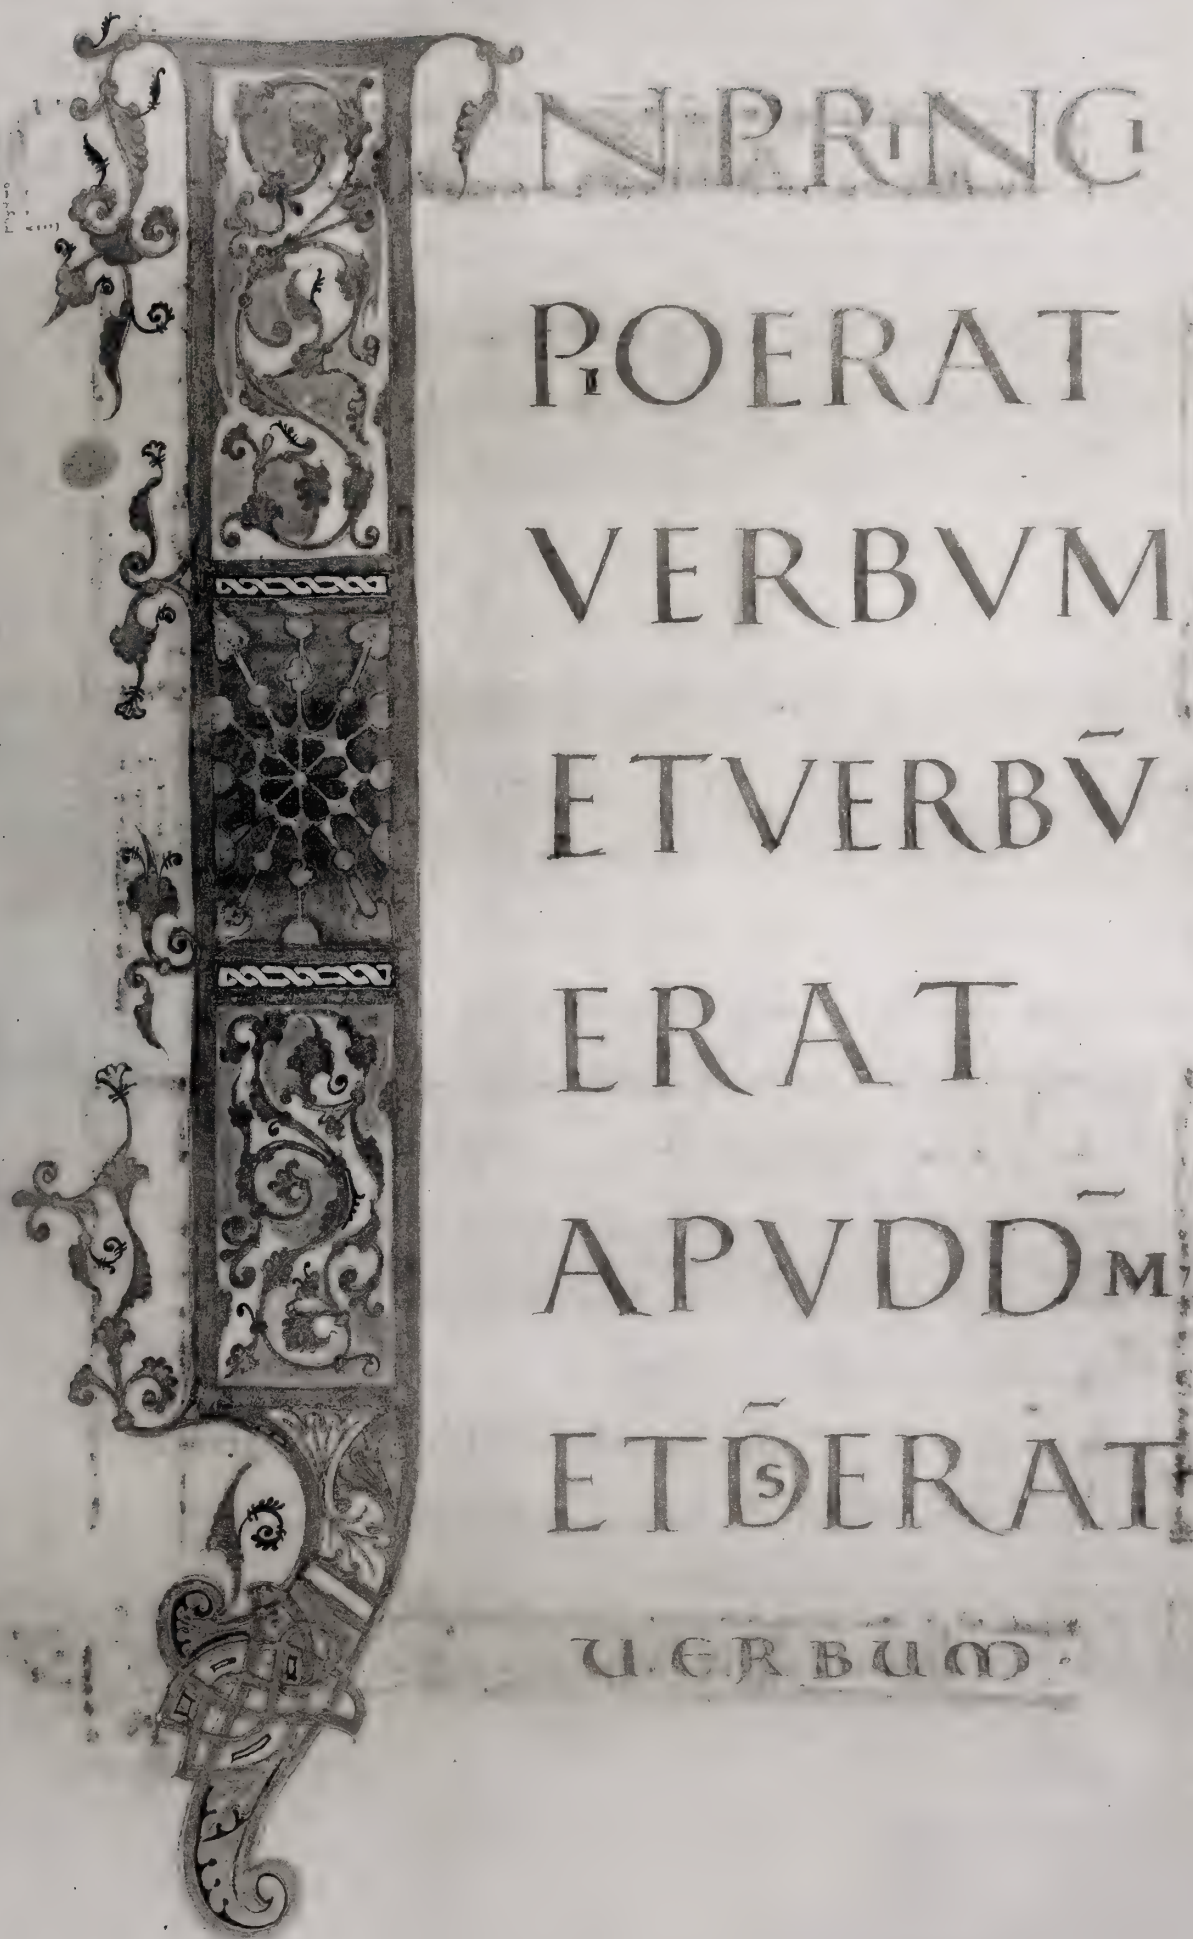 IN PRINCI
PIO ERAT
VERBVM
ET VERBV̄
ERAT
APVD D̄M
ET D̄S ERAT
VERBUM